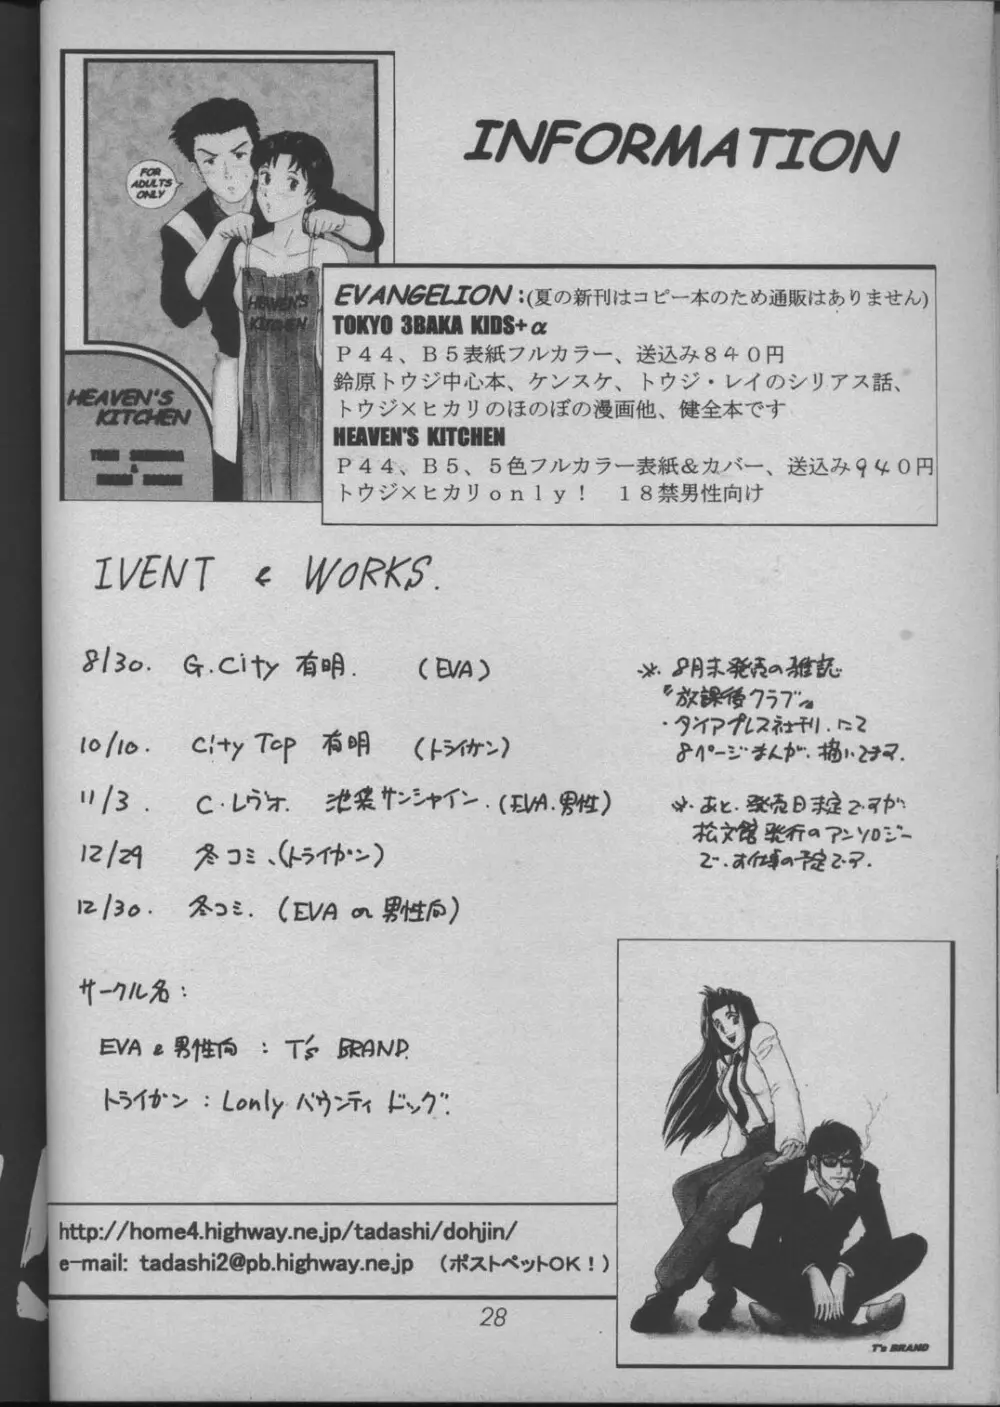 INFORMATION
FOR
ADULTS
ONLY
HEAVEN'S
KITCHEN
HEAVEN'S
KITCHEN
&
EVANGELION:(夏の新刊はコピー本のため通販はありません)
TOKYO 3BAKA KIDS+α
P44、B5表紙フルカラー、送込み840円
鈴原トウジ中心本、ケンスケ、トウジ・レイのシリアス話、
トウジ×ヒカリのほのぼの漫画他、健全本です
HEAVEN'S KITCHEN
P44、B5、5色フルカラー表紙&カバー、送込み940円
トウジ×ヒカリonly! 18禁男性向け
IVENT & WORKS.
8/30. G.City 有明. (EVA)
10/10. City Top 有明 (トライガン)
11/3. C・レヴォ. 池袋サンシャイン. (EVA.男性)
12/29 冬コミ、(トライガン)
12/30. 冬コミ. (EVA or 男性向)
※. 8月末発売の雑誌
『放課後クラブ』
・タイアプレス社刊. にて
8ページまんが. 描いてます.
※. あと. 発売日未定ですが
松文館発行のアンソロジー
で. お仕事の予定です.
サークル名:
EVA & 男性向 : T's BRAND.
トライガン : Lonly バウンティ ドッグ.
http://home4.highway.ne.jp/tadashi/dohjin/
e-mail: tadashi2@pb.highway.ne.jp (ポストペットOK!)
28
T's BRAND